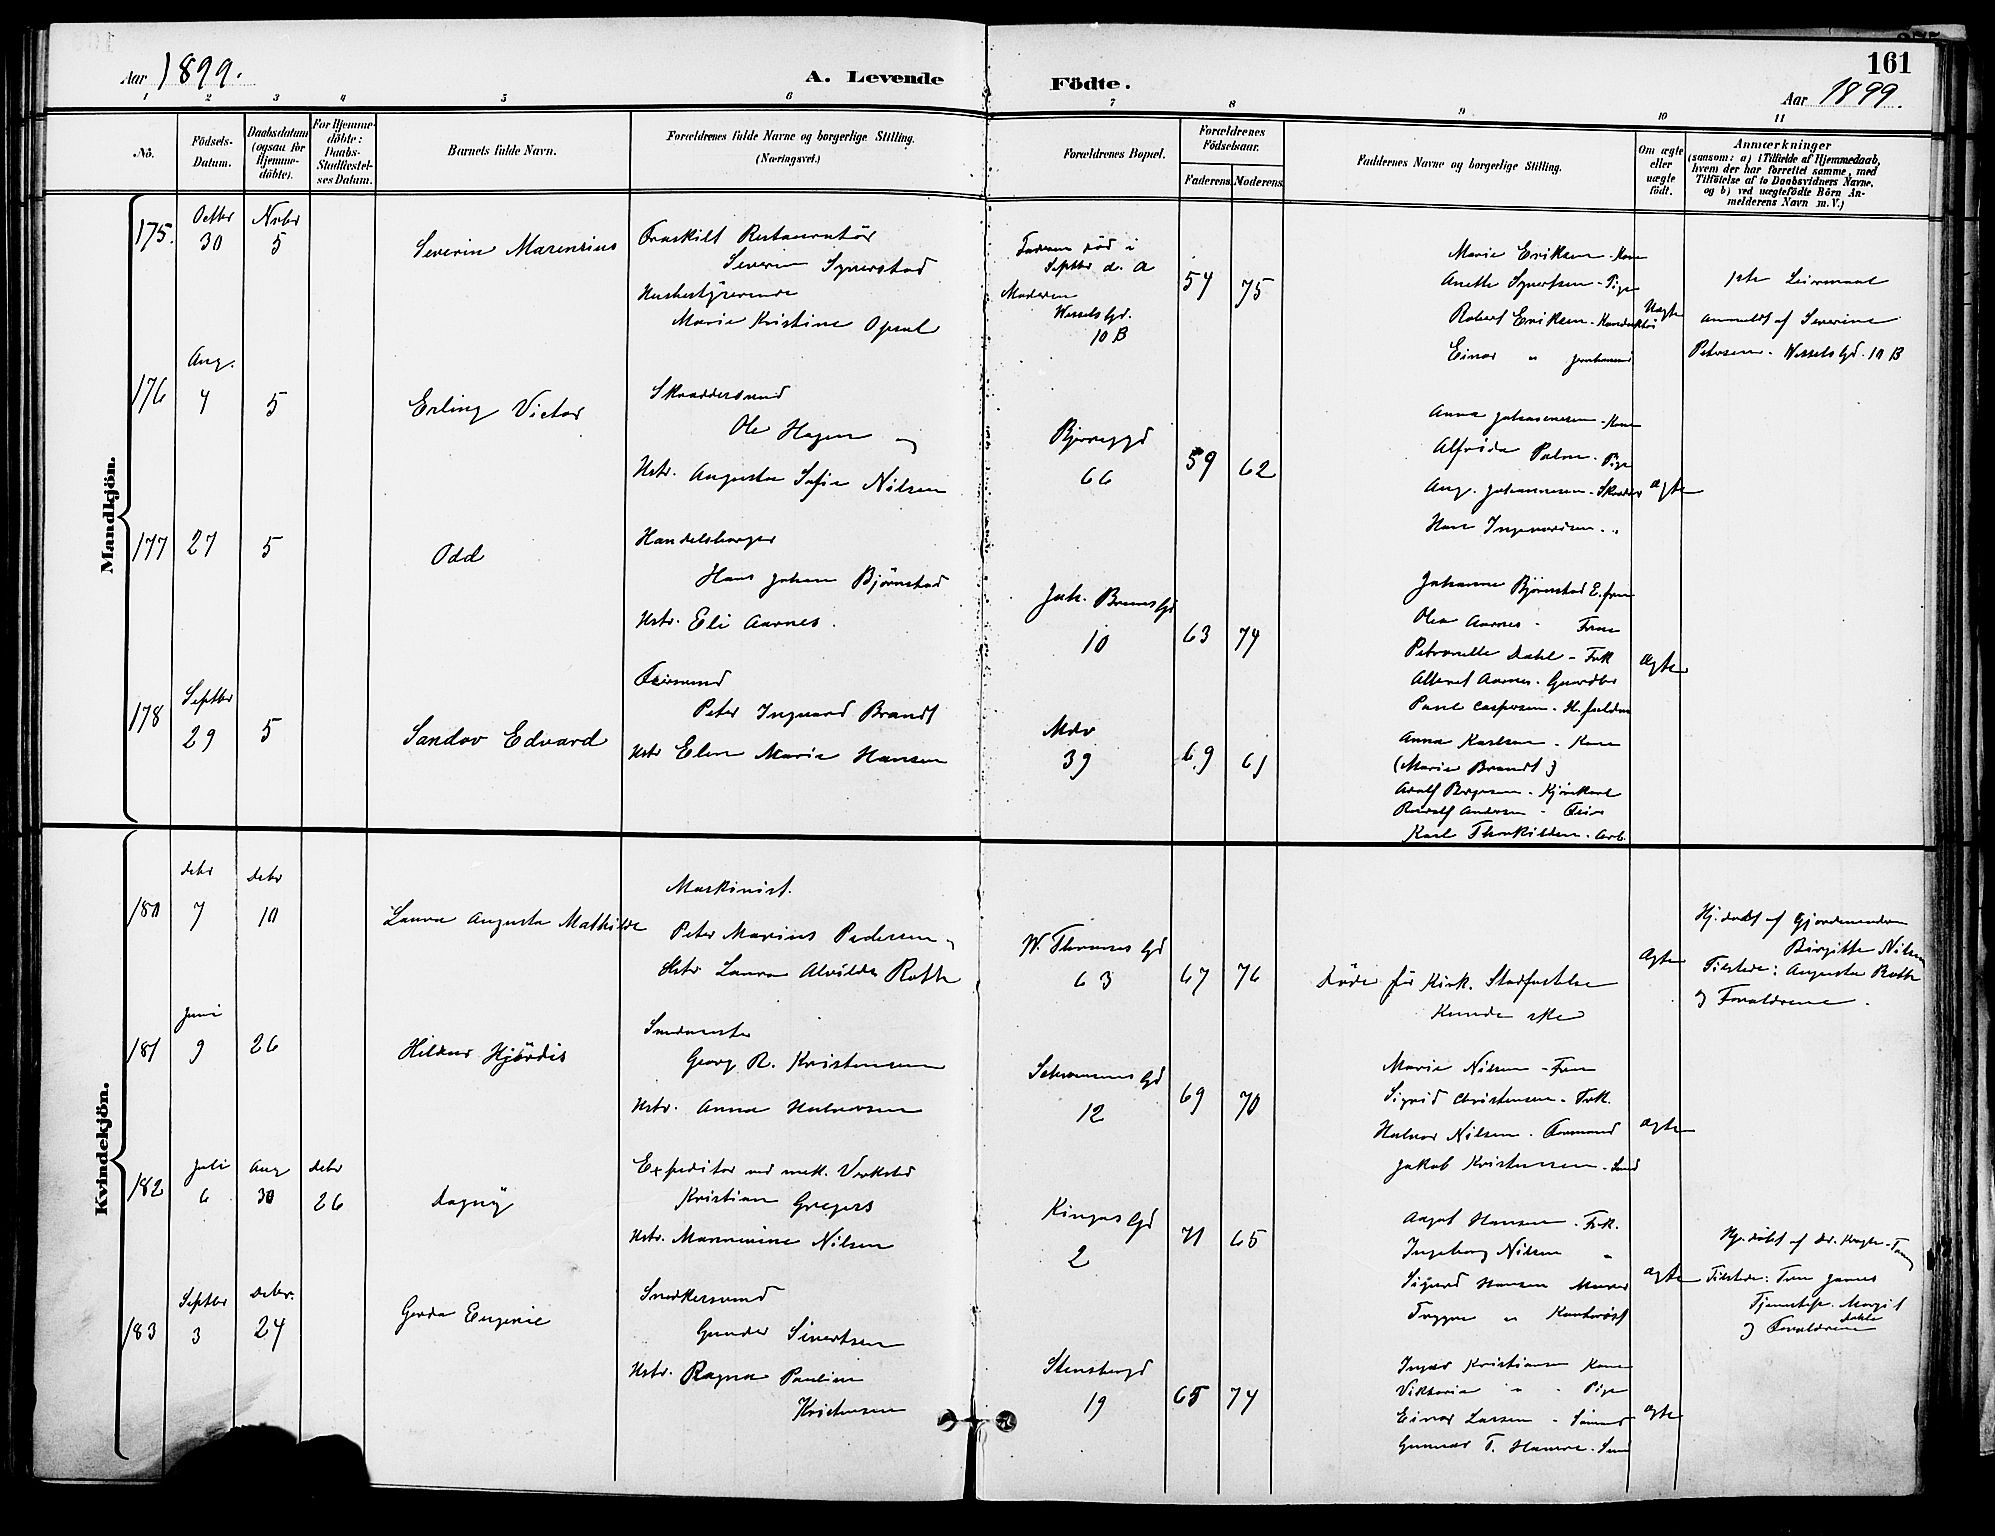 161
Aar 1899.
A. Levende Födte.
Aar 1899.
1 2 3 4 5 6 7 8 9 10 11
No.
Födsels-
Datum.
Daabsdatum
(ogsaa for
Hjemme-
döbte).
For Hjemme-
döbte:
Daabs-
Stadfæstel-
ses Datum.
Barnets fulde Navn.
Forældrenes fulde Navne og borgerlige Stilling.
(Næringsvei.)
Forældrenes Bopæl.
Forældrenes
Födselsaar.
Faderens. Moderens.
Faddernes Navne og borgerlige Stilling.
Om ægte
eller
uægte
födt.
Anmærkninger
(saasom: a) i Tilfælde af Hjemmedaab,
hvem der har forrettet samme, med
Tilföielse af to Daabsvidners Navne,
og b) ved uægtefödte Börn An-
melderens Navn m. V.)
Mandkjön.
175.
Octbr
30
Novbr
5
Severin Marensius
Fraskilt Restauratör
Severin Syverstad
Husbestyrerende
Marie Kristine Opsal
Faderen död i
Septbr d. A
Moderen
Wessels Gd.
10 B
54 75
Marie Eriksen - Kone
Anette Syvertsen - Pige
Robert Eriksen - Konduktör
Einar "
Uægte
1ste Leiermaal
anmeldt af Severine
Petersen. Wessels Gd. 10 B
176
Aug.
4
5
Erling Victor
Skræddersvend
Ole Hagen og
Hstr. Augusta Sofie Nilsen
Bjerregd
66
59 62
Anna Johannesen - Kone
Alfrida Palm - Pige
Aug. Johannesen - Skrædder
ægte
177
27
5
Odd
Handelsborger
Hans Johan Björnstad
Hstr. Eli Aarnes.
Joh. Bruns Gd
10
63 74
Johanne Björnstad E. frue
Olea Aarnes - Frue
Petronelle Dahl - Frk
Aarnes - Gaardbr
Paul Caspersen -
ægte
178
Septbr
29
5
Sandov Edvard
Feiersvend
Peter Ingvard Brandt
Hstr Elen Marie Hansen
39
69 61
Anna Karlsen - Kone
(Marie Brandt)
Adolf Borgersen - Kjörekarl
Andersen - Feier
Karl Thorkildsen - Arb.
Kvindekjön.
180
debr
7
debr
10
Laura Augusta Mathilde
Maskinist.
Peter Marius Pedersen og
Hstr Laura Alvilde Rotte
W. Thranes Gd
63
67 76
Döde för Kirk. Stadfæstelse
kunde ske
ægte
Hj. döbt af Gjordemoderen
Birgitte Nilsen
Tilstede: Augusta Rotte
og Forældrene.
181
Juni
9
26
Hildur Hjördis
Georg R. Kristensen
Hstr. Anna Halvorsen
Schwensens Gd
12
69 70
Marie Nilsen - Frue
Sigrid Christensen - Frk.
Halvor Nilsen - Formand
Jakob Kristensen -
ægte
182
Juli
6
Aug
30
debr
26
Dagny
Expeditör ved mek. Verksted
Kristian Gregers
Hstr. Nilsen
Kingos Gd
2
71 65
Aagot Hansen - Frk.
Ingeborg Nilsen "
Sigurd Hansen Murer
Trygve " Kontorist
ægte
Hj. döbt af Dr.
Tilstede: Fru James
Tjenestepe. Margit
Dahle
og Forældrene
183
Septbr
3
Debr.
24
Gerda Eugenie
Snedkersvend
Gunder Sivertsen
Hstr. Ragna Pauline
Kristensen
Stensbergd
19
65 74
Kristiansen Kone
Viktoria " - Pige
Einar Larsen -
Gunnar T. Hansen -
ægte